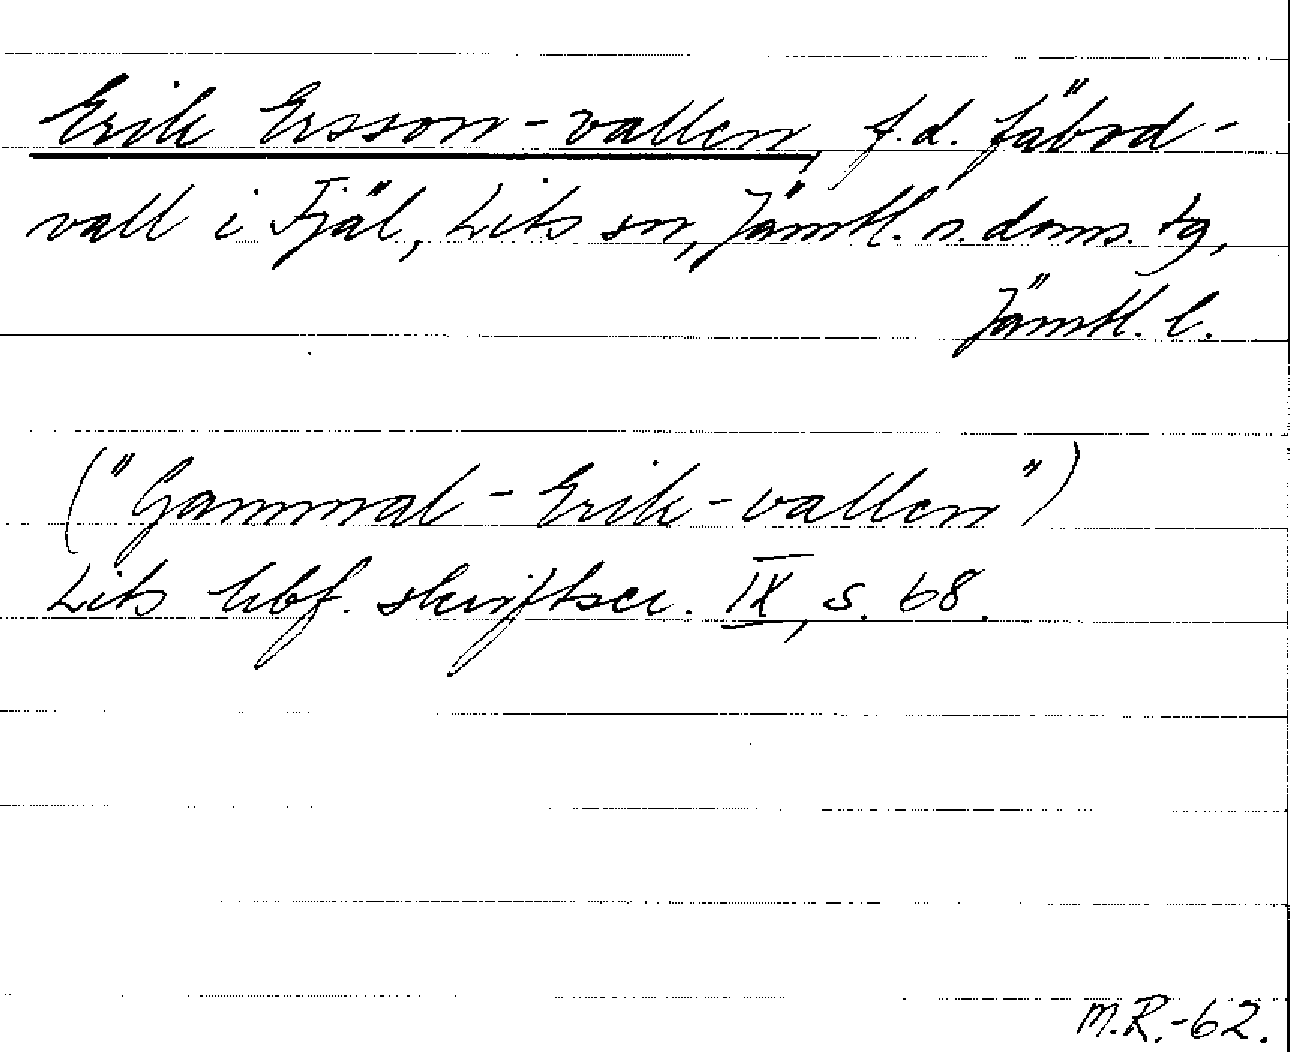 Erik Ersson-vallen, f.d. fäbod-
vall i Fjäl, Lits sn, Jämtl. n. doms. tg,
Jämtl. l.
("Gammal-Erik-vallen")
Lits hbf. skriftser. IX, s. 68.
M.R.-62.